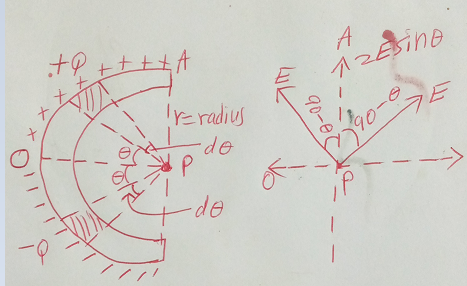 +Q + + + + A
r=radius
+ + + +
O θ dθ
P
θ
dθ
-Q
A
2E sinθ
E E
90-θ 90-θ
O P